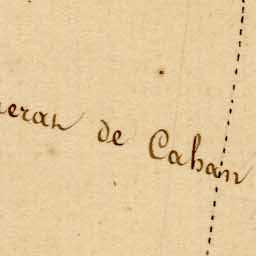 neran de Caban